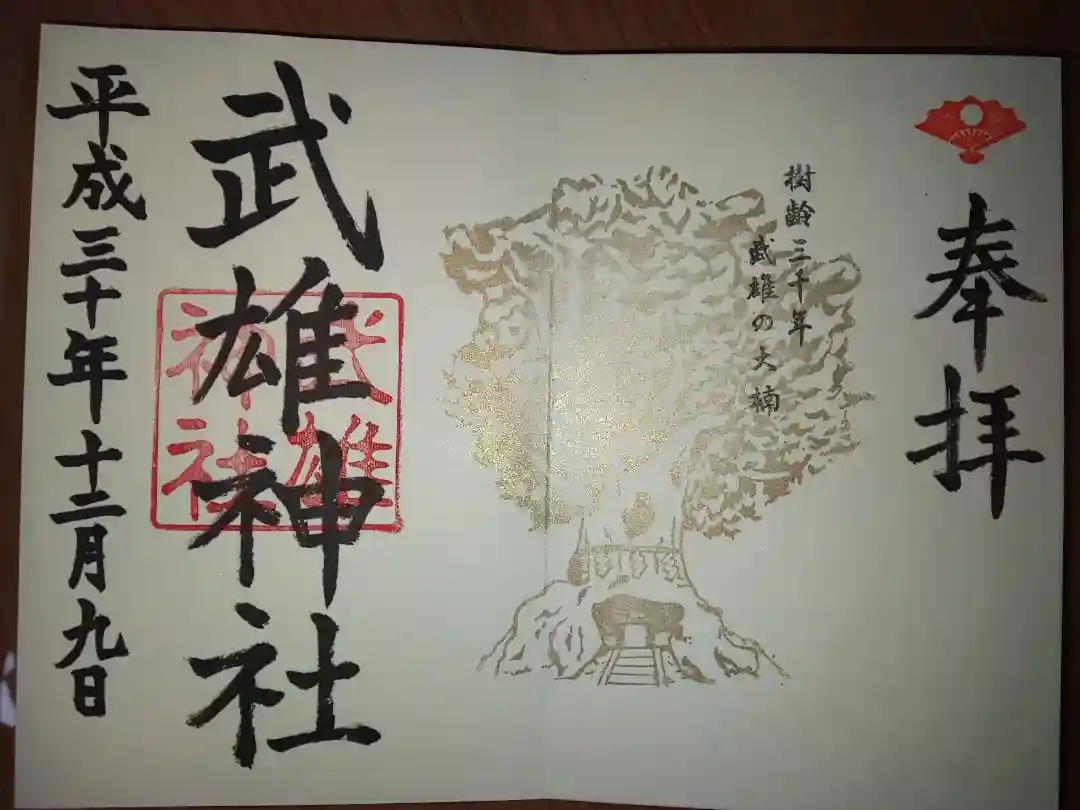 奉拝
樹齢三千年
武雄の大楠
武雄神社
武雄
神社
平成三十年十二月九日